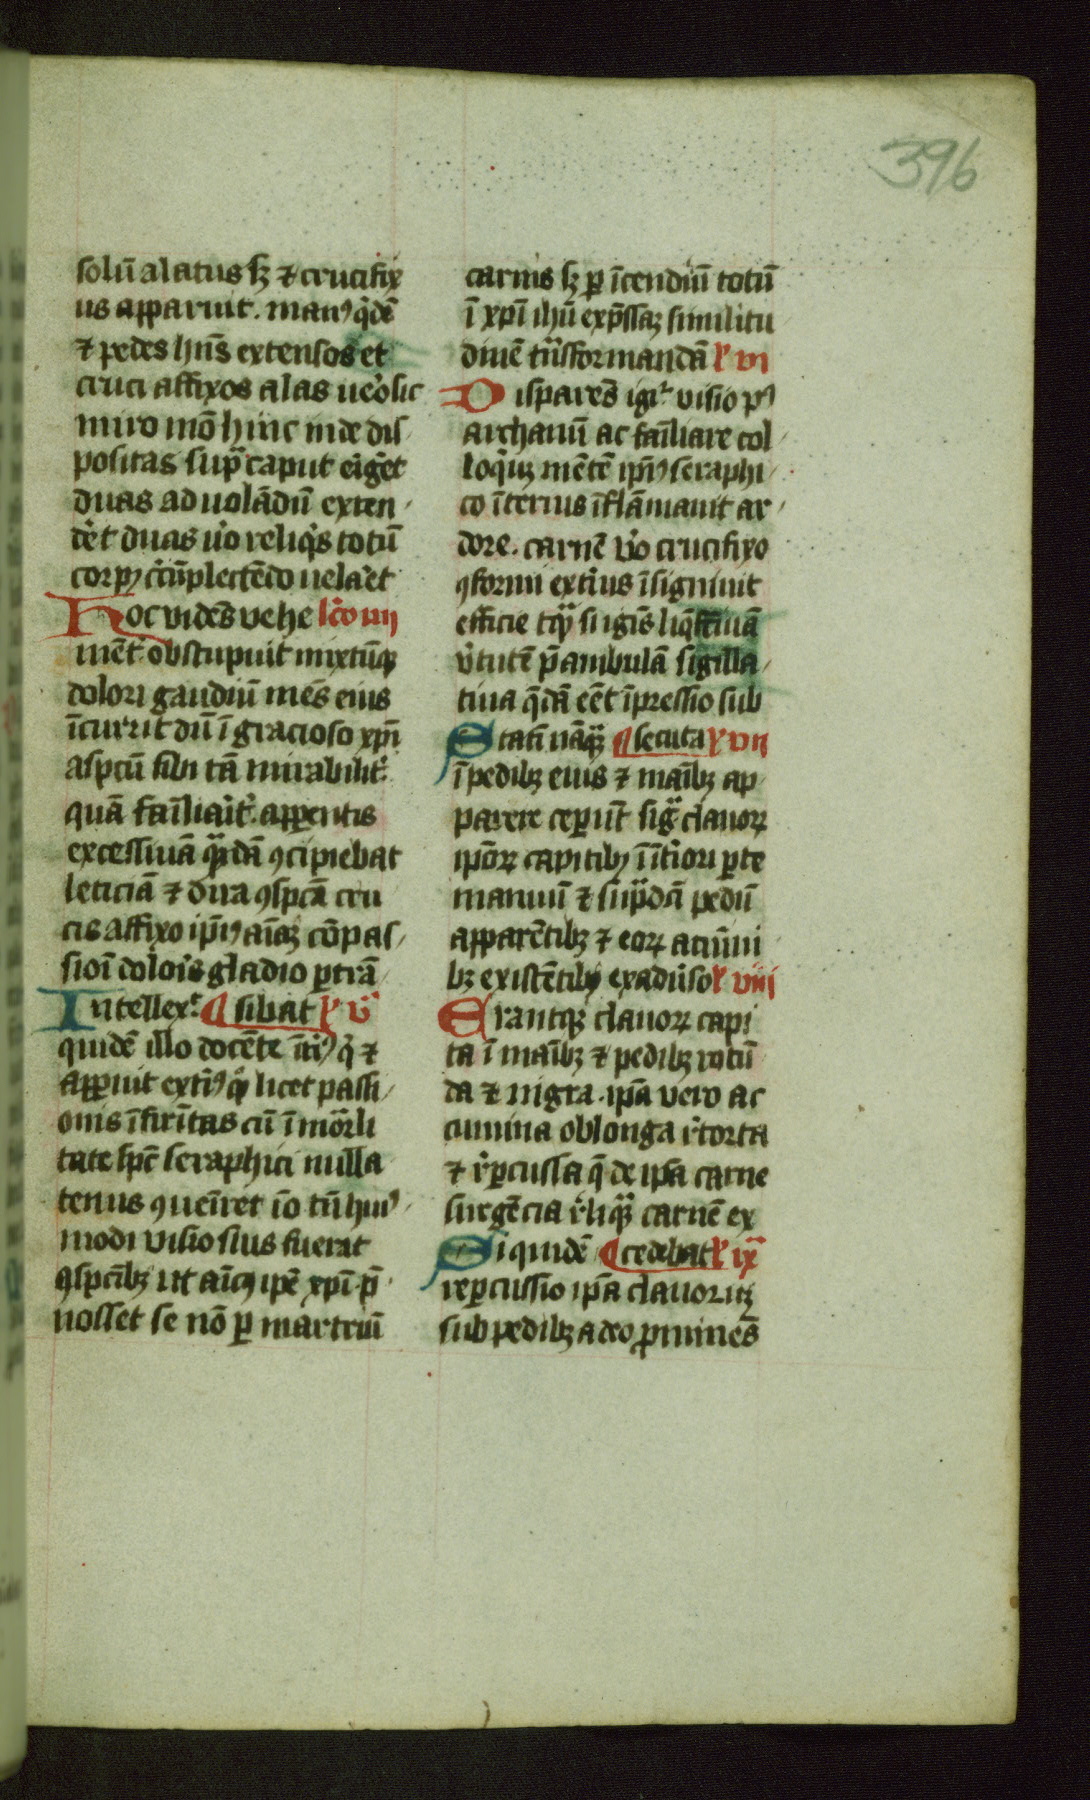 396
solū alatus sꝫ ⁊ crucifix
us apparuit. manꝰ q̇dē
⁊ pedes hn̄s extensos et
cruci affixos alas uc̓o sic
miro mō hinc inde dis
positas sup̄ caput eiget
duas ad uolādū exten
det duas u̓o reliq̇s totū
corpꝰ c̓cūplectēdo uelaet
Hoc vidēs vehe lc̄o iiii
ment̓ obstupuit mixtūqꝫ
dolori gaudiū mēs eius
īcurrit dū ī gracioso xp̄i
aspcū sibi tā mirabilit̓
quā fāiliait̓. apparentis
excessiuā quādā ꝯcipiebat
leticiā ⁊ dira ꝯspcā cru
cis affixo ip̄iꝰ aīaꝫ cōpas
sioī doloris gladio ꝑtrā
Intellex̓ ¶ sibat l̓ v̓
quidē illo docēte īt̓iꝰ q̇ ⁊
aꝑuit ext̓iꝰ qꝫ licet passi
onis īfir̄itas cū ī mōrli
tate spē seraphici nulla
tenus ꝯueīret īo tn̄ huiꝰ
modi visio suis fuerat
ꝯspcībꝫ ut aīcꝰ ipē xp̄i p̄
nosset se nō ꝑ martriū
carnis sꝫ ꝑ īcendiū totū
ī xp̄i ihū exp̄ssaꝫ similitu
dinē trāsformandā l̓ vi
Disparēs igi᷑ visio pꝰ
archanū ac fāiliare col
loq̇uꝫ mētē ip̄iꝰ seraphi
co īterius īflāmauit ar
dore. carnē u̓o crucifixo
ꝯformi ext̓ius īsigniuit
efficie tqꝫ si igīs liq̄ftiuā
v̓tutē p̄ambulā sigilla
tiua q̄dā eēt īpressio sub
Statī nāqꝫ ¶ secuta l̓ vii
ī pedibꝫ eius ⁊ maībꝫ ap
parere ceperūt signa clauoꝝ
ipōꝝ capitibꝰ ī īt̓iori ꝑte
manuū ⁊ sup̄dcī pedū
apparētibꝫ ⁊ eoꝝ acumi
bꝫ existētibꝫ ex adu̓so l̓ viii
Erantqꝫ clauoꝝ capi
ta ī maībꝫ ⁊ pedibꝫ rotū
da ⁊ nigra. ip̄a vero ac
cumina oblonga r̓torta
⁊ r̓ꝑcussa q̄ de ip̄a carne
surgēcia r̓liquā carnē ex
Siquidē ¶ cedebāt l̓ ix
reꝑcussio ip̄a clauoruꝫ
sub pedibꝫ adeo ꝓminēs